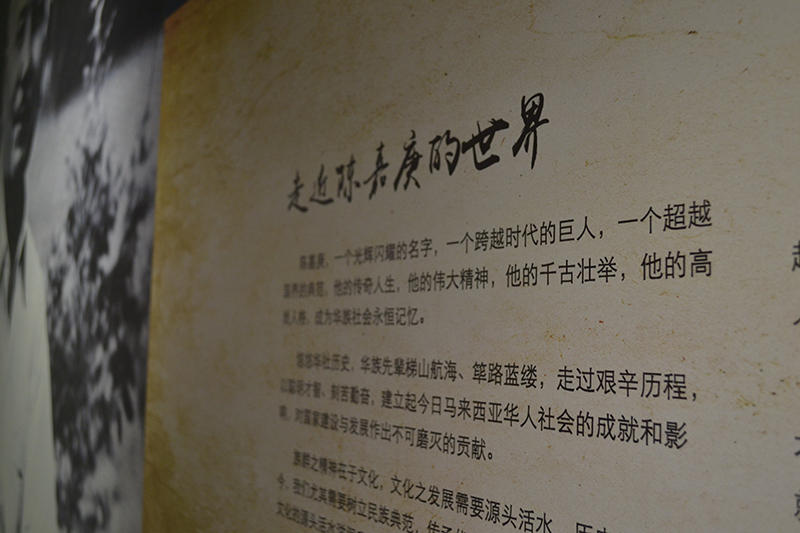 走近陈嘉庚的世界
陈嘉庚，一个光辉闪耀的名字，一个跨越时代的巨人，一个超越
国界的典范，他的传奇人生，他的伟大精神，他的千古壮举，他的高
尚人格，成为华族社会永恒记忆。
华社历史，华族先辈梯山航海、筚路蓝缕，走过艰辛历程，
以聪明才智、刻苦勤奋，建立起今日马来西亚华人社会的成就和影
响，对国家建设与发展作出不可磨灭的贡献。
族群之精神在于文化，文化之发展需要源头活水。历史
今，我们尤其需要树立民族典范，传承
文化的源头活水